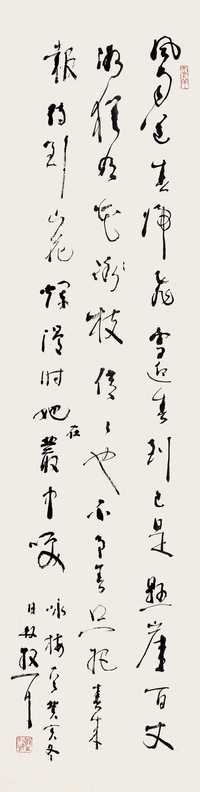 風雨送春歸飛雪迎春到已是懸崖百丈
冰猶有花枝俏〻也不争春只把春来
報待到山花爛漫时她在叢中咲
咏梅 癸亥冬